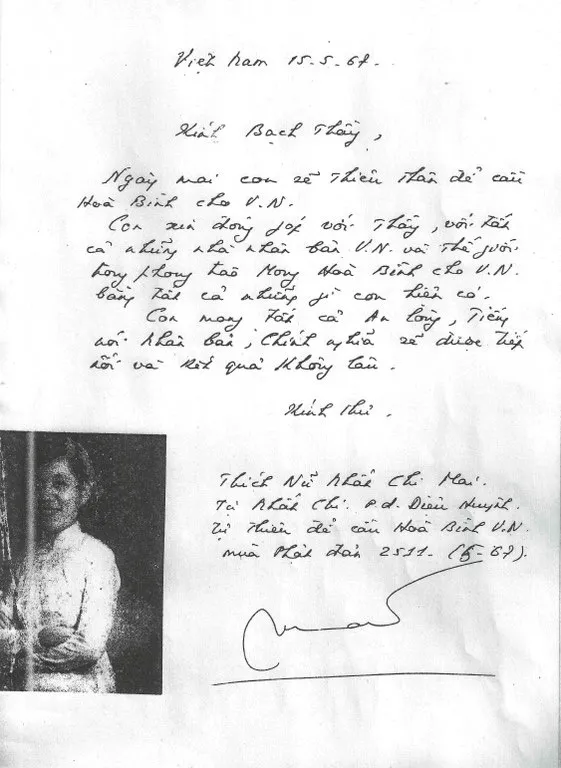 Việt Nam 15.5.67.
Kính Bạch Thầy,
Ngày mai con sẽ thiêu thân để cầu
Hoà Bình cho V.N.
Con xin đóng góp với Thầy, với tất
cả những nhà nhân bản V.N. và thế giới
trong phong trào Mong Hoà Bình cho V.N.
bằng tất cả những gì con hiện có.
Con mong tất cả An lòng, Tiếng
nói Nhân bản, Chính nghĩa sẽ được tiếp
nối và kết quả không lâu.
Kính thư.
Thích Nữ Nhất Chi Mai.
Tự Nhất Chi. P.d. Diệu Huỳnh.
Tự thiêu để cầu Hoà Bình V.N.
mùa Phật đản 2511. (5-67).